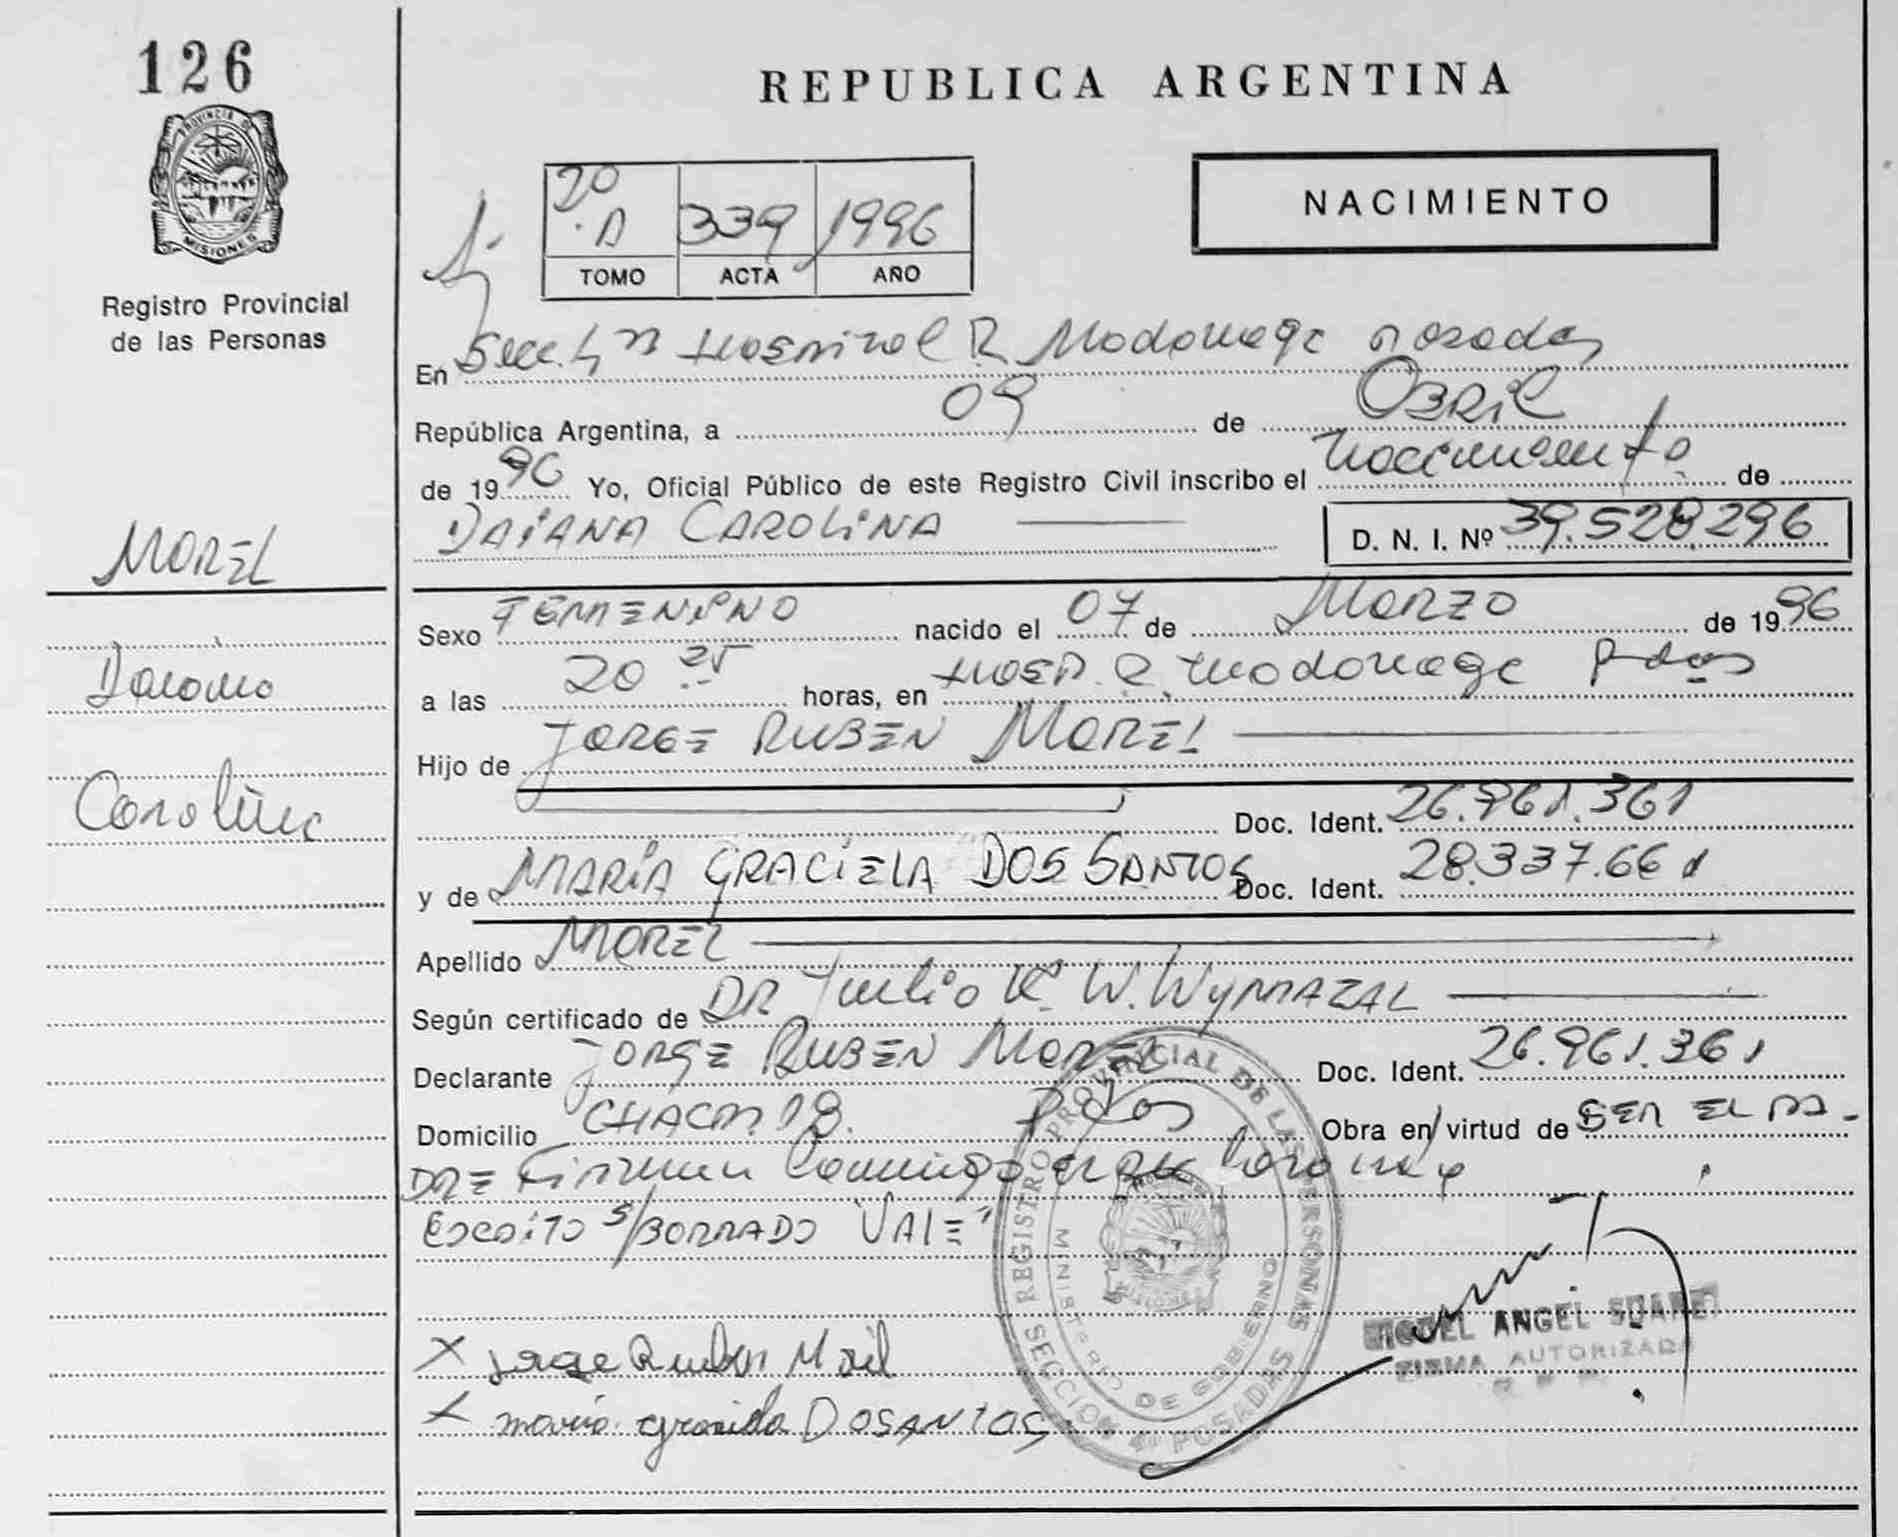 126
PROVINCIA DE
MISIONES
Registro Provincial
de las Personas
MOREL
Daiana
Carolina
REPUBLICA ARGENTINA
NACIMIENTO
339 1996
TOMO ACTA AÑO
En Secc. 4ª Hospital R Madariaga Posadas
República Argentina, a 09 de Abril
de 1996 Yo, Oficial Público de este Registro Civil inscribo el Nacimiento de
DAIANA CAROLINA D. N. I. Nº 39.528.296
Sexo FEMENINO nacido el 07 de Marzo de 1996
a las 20 25 horas, en Hosp. R. Madariaga Pdas
Hijo de JORGE RUBEN MOREL
Doc. Ident. 26.961.361
y de MARIA GRACIELA DOS SANTOS Doc. Ident. 28.337.661
Apellido MOREL
Según certificado de DR Julio W. WYMAZAL
Declarante JORGE RUBEN MOREL Doc. Ident. 26.961.361
Domicilio CHACRA 18. Pdas Obra en virtud de SER EL PA-
DRE Firman
Escrito s/BORRADO "VALE"
X Jorge Ruben Morel
X maria graciela DOSANTOS
REGISTRO PROVINCIAL DE LAS PERSONAS
SECCION 4ª POSADAS
MINISTERIO DE GOBIERNO
MIGUEL ANGEL SUAREZ
FIRMA AUTORIZADA